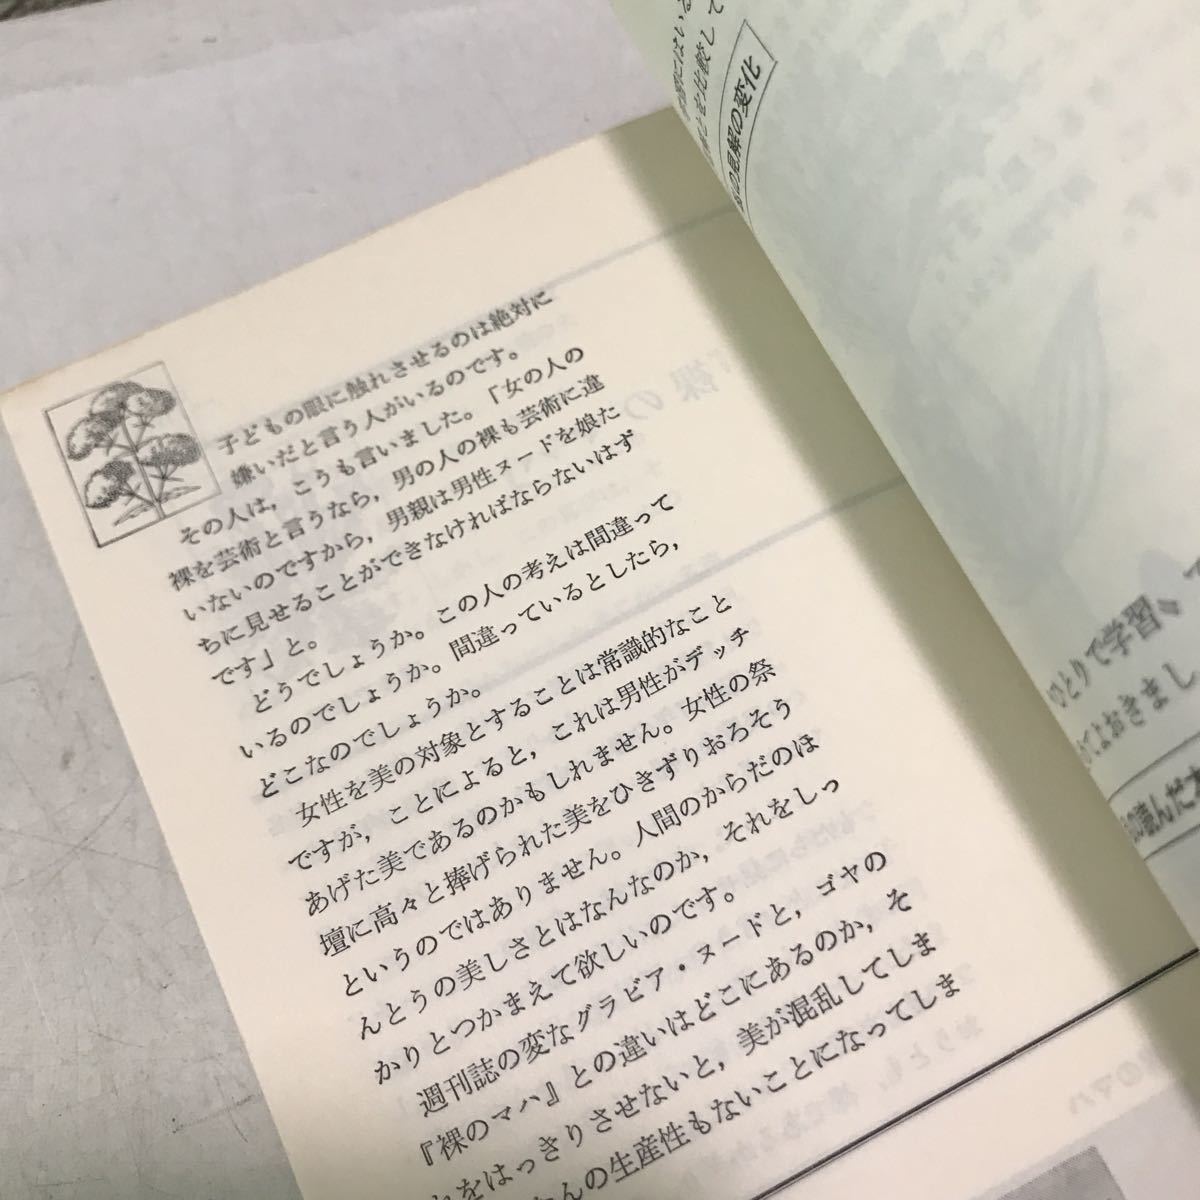 子どもの眼に触れさせるのは絶対に
嫌いだと言う人がいるのです。
その人は，こうも言いました。「女の人の
裸を芸術と言うなら，男の人の裸も芸術に違
いないのですから，男親は男性ヌードを娘た
ちに見せることができなければならないはず
です」と。
どうでしょうか。この人の考えは間違って
いるのでしょうか。間違っているとしたら，
どこなのでしょうか。
女性を美の対象とすることは常識的なこと
ですが，ことによると，これは男性がデッチ
あげた美であるのかもしれません。女性の祭
壇に高々と捧げられた美をひきずりおろそう
というのではありません。人間のからだのほ
んとうの美しさとはなんなのか，それをしっ
かりとつかまえて欲しいのです。
週刊誌の変なグラビア・ヌードと，ゴヤの
『裸のマハ』との違いはどこにあるのか，そ
れをはっきりさせないと，美が混乱してしま
んの生産性もないことになってしま
ひとりで学習
てよおきまし
の読んだ